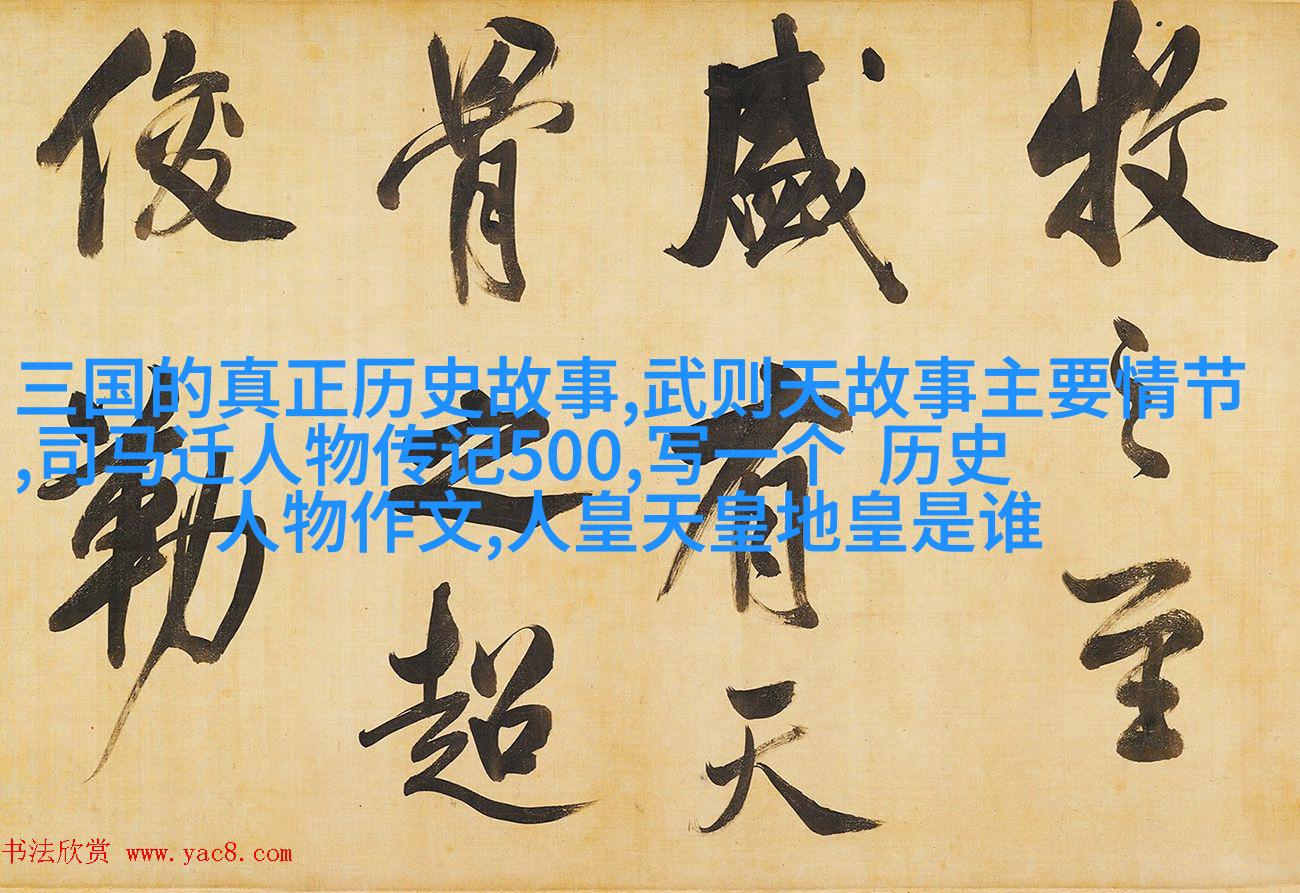 牧之至
盛有天
骨之超
俊勒
三国的真正历史故事,武则天故事主要情节
,司马迁人物传记500,写一个 历史
人物作文,人皇天皇地皇是谁
书法欣赏 www.yac8.com